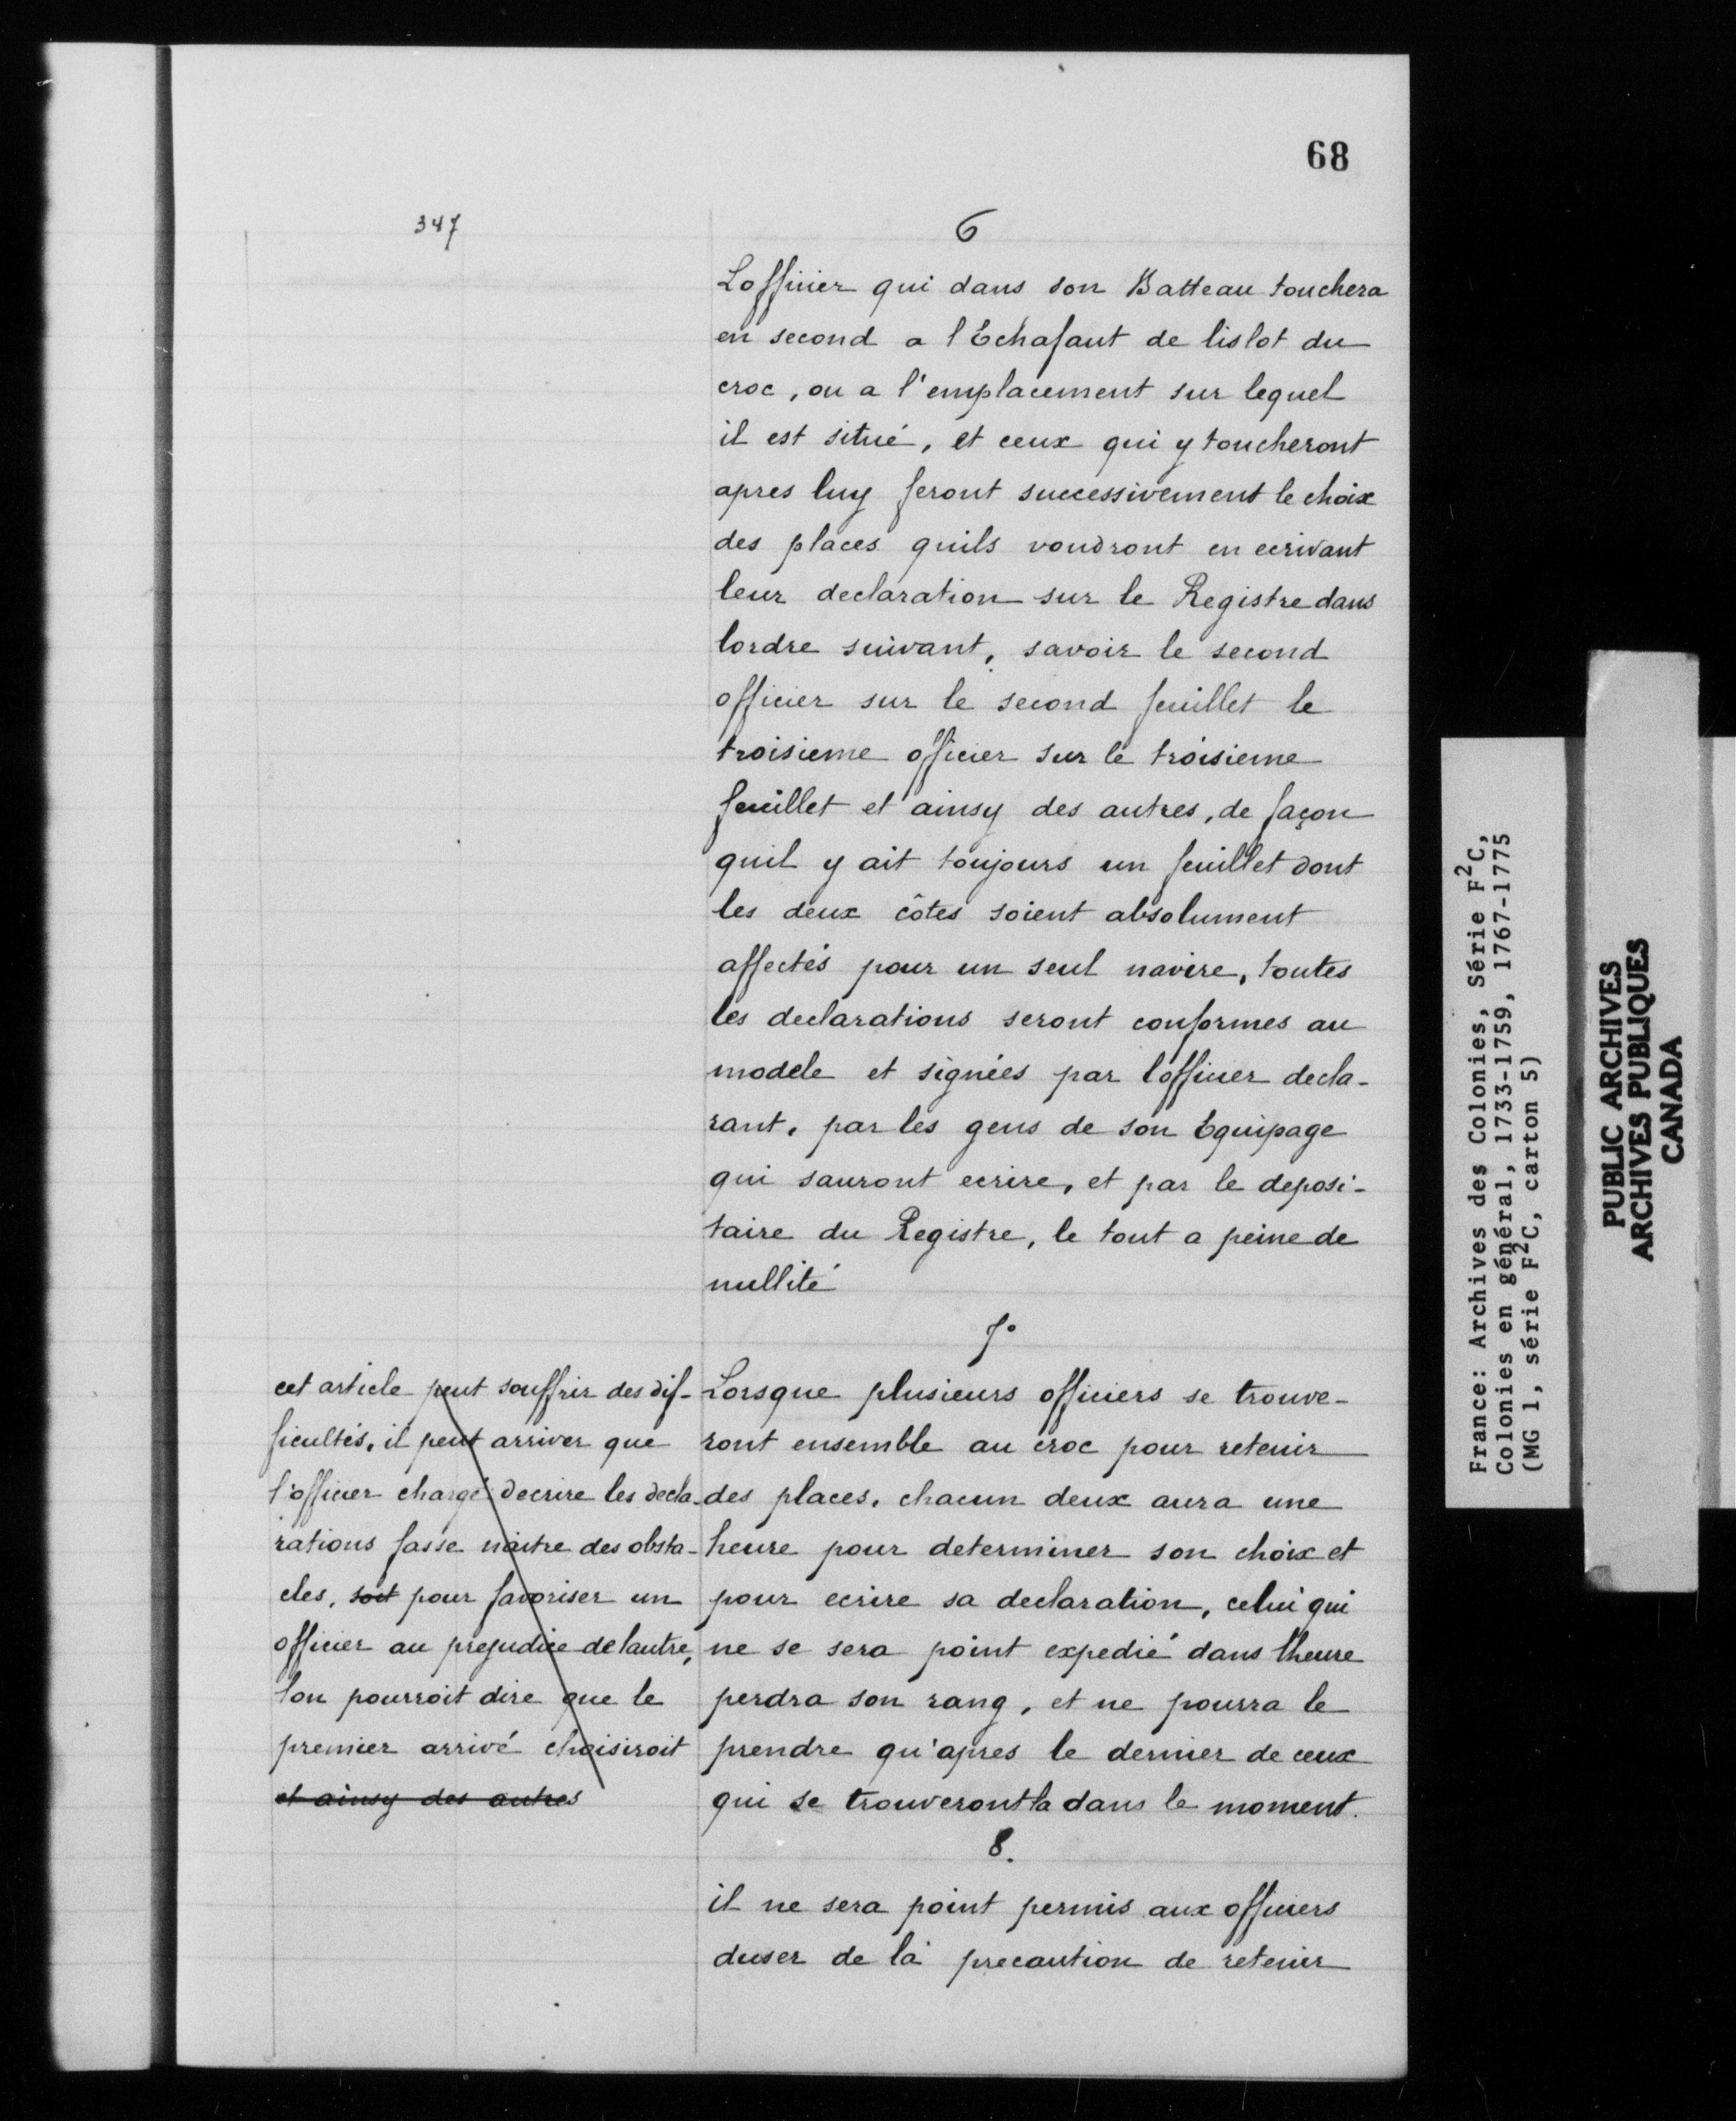 68
347
6
Lofficier qui dans son Batteau touchera
en second a l'Echafaut de lislot du
croc, ou a l'emplacement sur lequel
il est situé, et ceux qui y toucheront
apres luy feront successivement le choix
des places quils voudront en ecrivant
leur declaration sur le Registre dans
lordre suivant, savoir le second
officier sur le second feuillet le
troisieme officier sur le troisieme
feuillet et ainsy des autres, de façon
quil y ait toujours un feuillet dont
les deux côtes soient absolument
affectés pour un seul navire, toutes
les declarations seront conformes au
modele et signées par lofficier decla-
rant, par les gens de son Equipage
qui sauront ecrire, et par le deposi-
taire du Registre, le tout a peine de
nullité
7°
Lorsque plusieurs officiers se trouve-
ront ensemble au croc pour retenir
des places, chacun deux aura une
heure pour determiner son choix et
pour ecrire sa declaration, celui qui
ne se sera point expedié dans lheure
perdra son rang, et ne pourra le
prendre qu'apres le dernier de ceux
qui se trouveront la dans le moment.
8.
il ne sera point permis aux officiers
duser de la precaution de retenir
cet article peut souffrir des dif-
ficultés, il peut arriver que
l'officier chargé decrire les decla-
rations fasse naitre des obsta-
cles, soit pour favoriser un
officier au prejudice de lautre,
lon pourroit dire que le
premier arrivé choisiroit
et ainsy des autres
France: Archives des Colonies, Série F²C,
Colonies en général, 1733-1759, 1767-1775
(MG 1, série F²C, carton 5)
PUBLIC ARCHIVES
ARCHIVES PUBLIQUES
CANADA